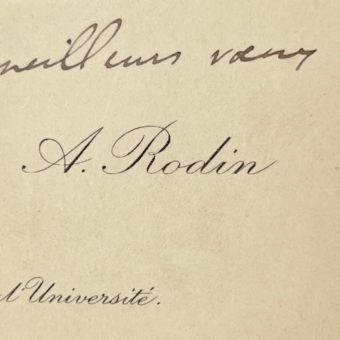 meilleurs vœux
A. Rodin
l'Université.